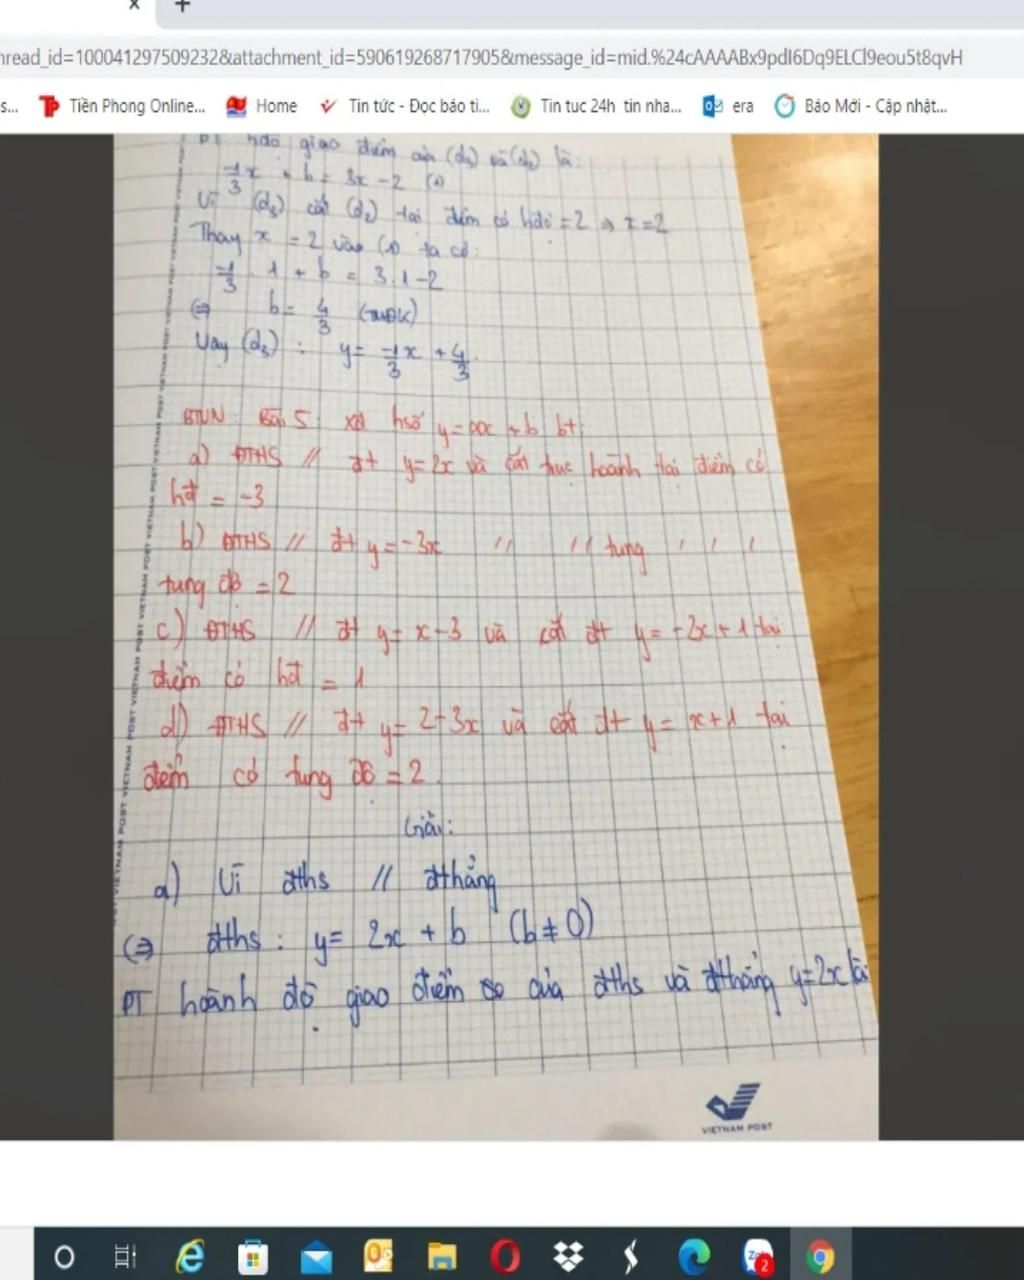 x +
hread_id=100041297509232&attachment_id=590619268717905&message_id=mid.%24cAAAABx9pdI6Dq9ELCl9eou5t8qvH
s... Tiền Phong Online... Home Tin tức - Đọc báo ti... Tin tuc 24h tin nha... era Báo Mới - Cập nhật...
PT hđộ giao điểm của (d₃) và (d₂) là:
-1/3 x + b = 3x - 2 (1)
Vì (d₃) cắt (d₂) tại điểm có hđộ = 2 ⇒ x = 2
Thay x = 2 vào (1) ta có:
-1/3 . 1 + b = 3.1 - 2
⇔ b = 4/3 (TMĐK)
Vậy (d₃) : y = -1/3 x + 4/3.
BTVN: Bài 5: xđ hsố y = ax + b bt
a) ĐTHS // đt y = 2x và cắt trục hoành tại điểm có
hđ = -3
b) ĐTHS // đt y = -3x // // tung , , ,
tung độ = 2
c) ĐTHS // đt y = x - 3 và cắt đt y = -2x + 1 tại
điểm có hđ = 1
d) ĐTHS // đt y = 2 - 3x và cắt đt y = x + 1 tại
điểm có tung độ = 2.
Giải:
a) Vì đths // đthẳng
⇔ đths : y = 2x + b (b ≠ 0)
PT hoành độ giao điểm của đths và đthẳng y = 2x là
VIETNAM POST
VIETNAM POST VIETNAM POST VIETNAM POST